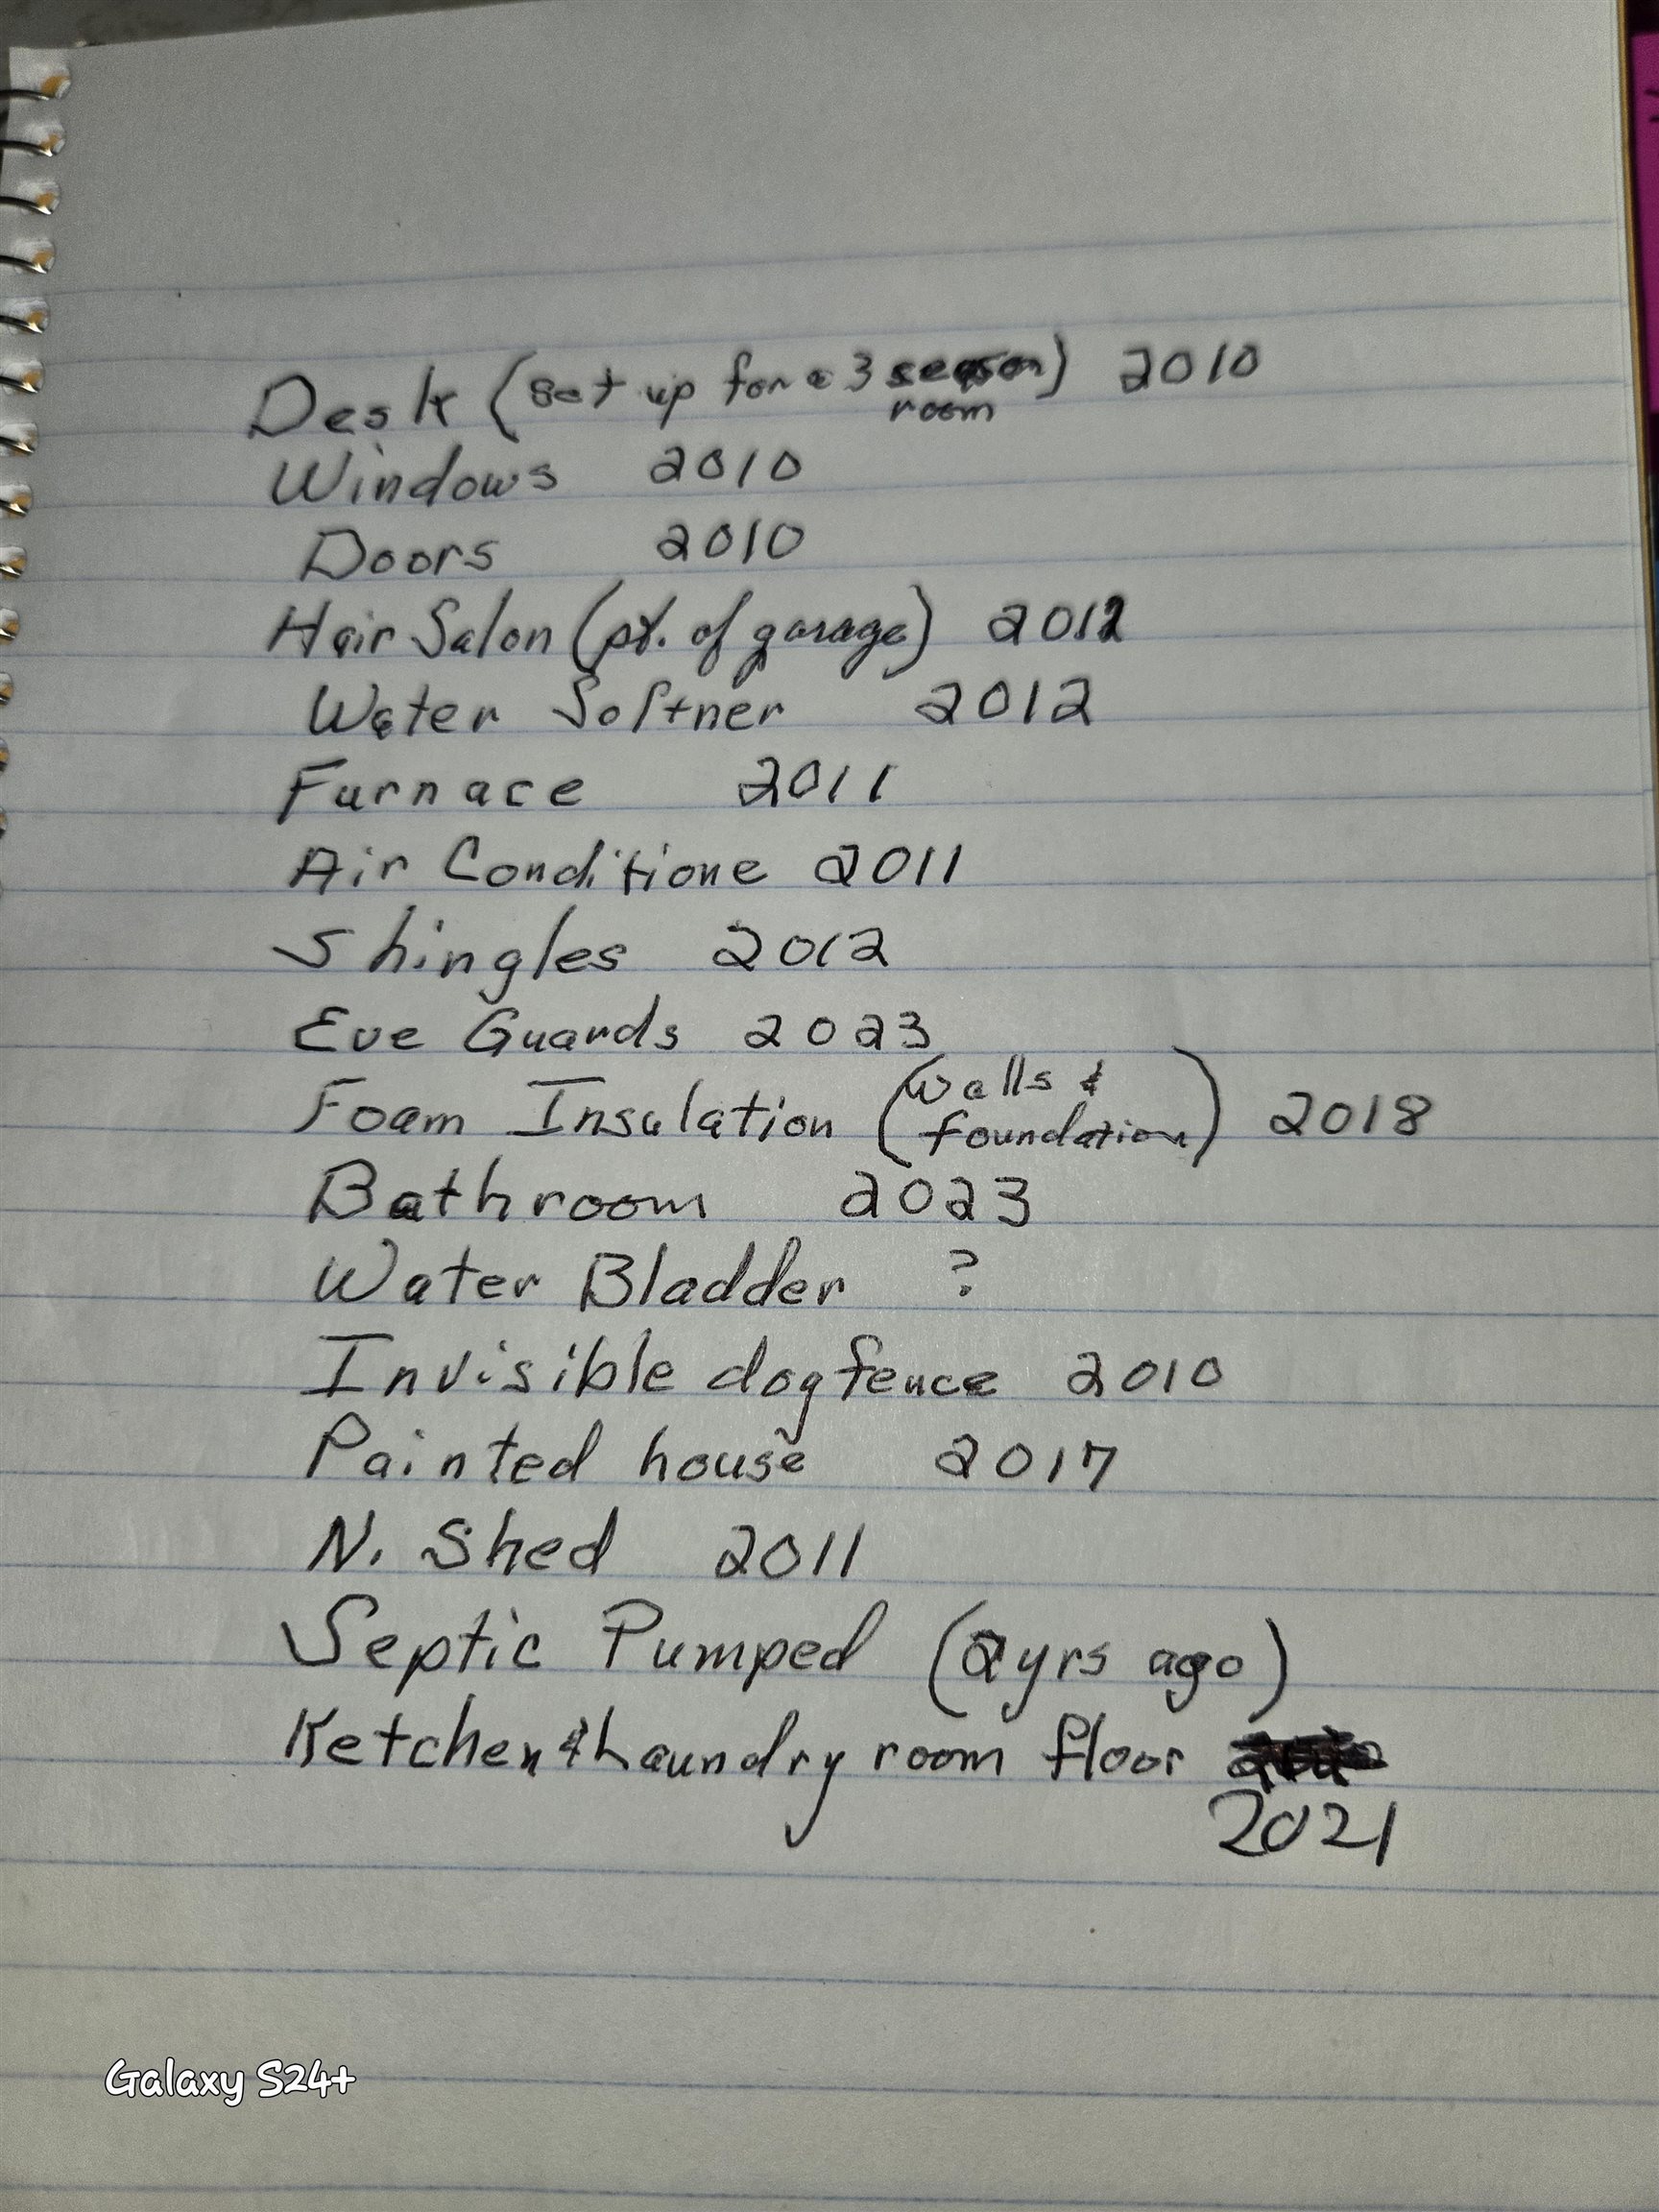 Desk (set up for a 3 season room) 2010
Windows 2010
Doors 2010
Hair Salon (pt. of garage) 2012
Water Softner 2012
Furnace 2011
Air Conditione 2011
Shingles 2012
Eve Guards 2023
Foam Insulation (walls & foundation) 2018
Bathroom 2023
Water Bladder ?
Invisible dog fence 2010
Painted house 2017
N. Shed 2011
Septic Pumped (2yrs ago)
Ketchen & Laundry room floor
2021
Galaxy S24+